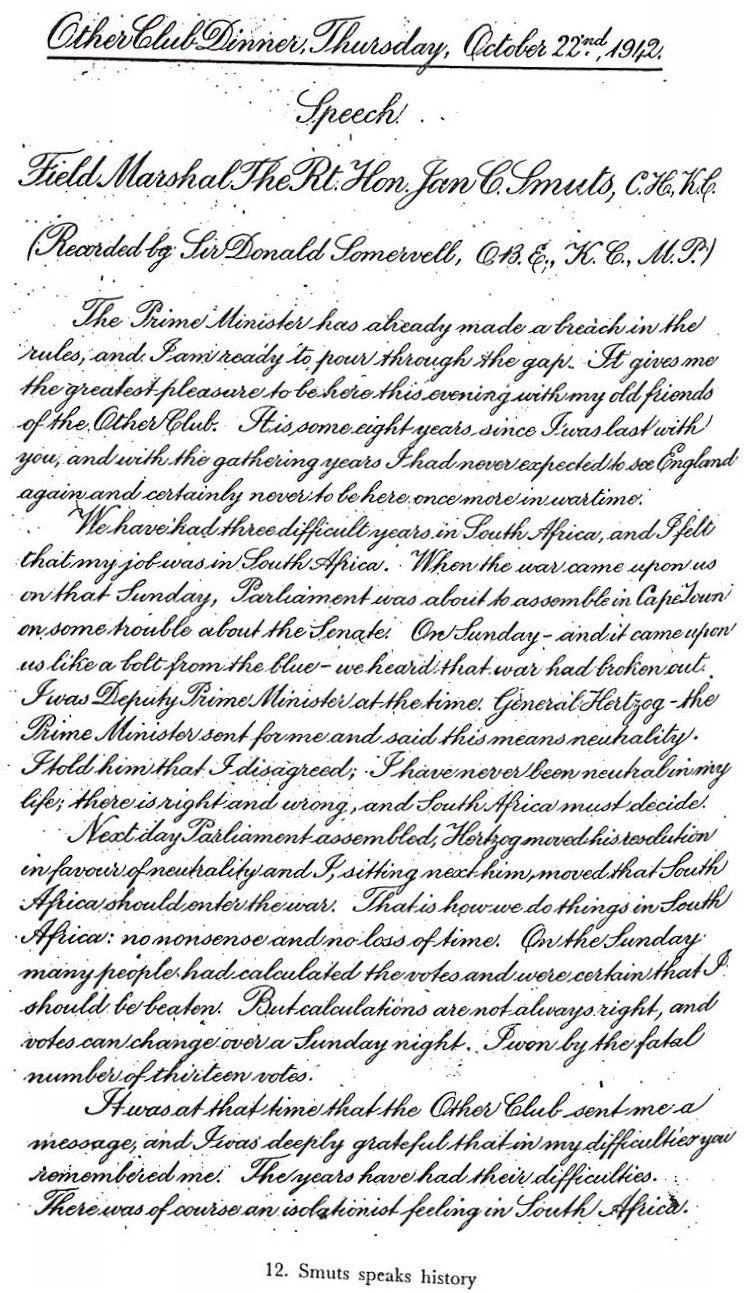 Other Club Dinner, Thursday, October 22nd, 1942.
Speech
Field Marshal The Rt. Hon. Jan C. Smuts, C.H., K.C.
(Recorded by Sir Donald Somervell, O.B.E., K.C., M.P.)
The Prime Minister has already made a breach in the
rules, and I am ready to pour through the gap. It gives me
the greatest pleasure to be here this evening with my old friends
of the Other Club. It is some eight years since I was last with
you, and with the gathering years I had never expected to see England
again and certainly never to be here once more in wartime.
We have had three difficult years in South Africa, and I felt
that my job was in South Africa. When the war came upon us
on that Sunday, Parliament was about to assemble in Cape Town
on some trouble about the Senate. On Sunday - and it came upon
us like a bolt from the blue - we heard that war had broken out.
I was Deputy Prime Minister at the time. General Hertzog - the
Prime Minister sent for me and said this means neutrality.
I told him that I disagreed; I have never been neutral in my
life; there is right and wrong, and South Africa must decide.
Next day Parliament assembled, Hertzog moved his resolution
in favour of neutrality and I, sitting next him, moved that South
Africa should enter the war. That is how we do things in South
Africa: no nonsense and no loss of time. On the Sunday
many people had calculated the votes and were certain that I
should be beaten. But calculations are not always right, and
votes can change over a Sunday night. I won by the fatal
number of thirteen votes.
It was at that time that the Other Club sent me a
message, and I was deeply grateful that in my difficulties you
remembered me. The years have had their difficulties.
There was of course an isolationist feeling in South Africa.
12. Smuts speaks history